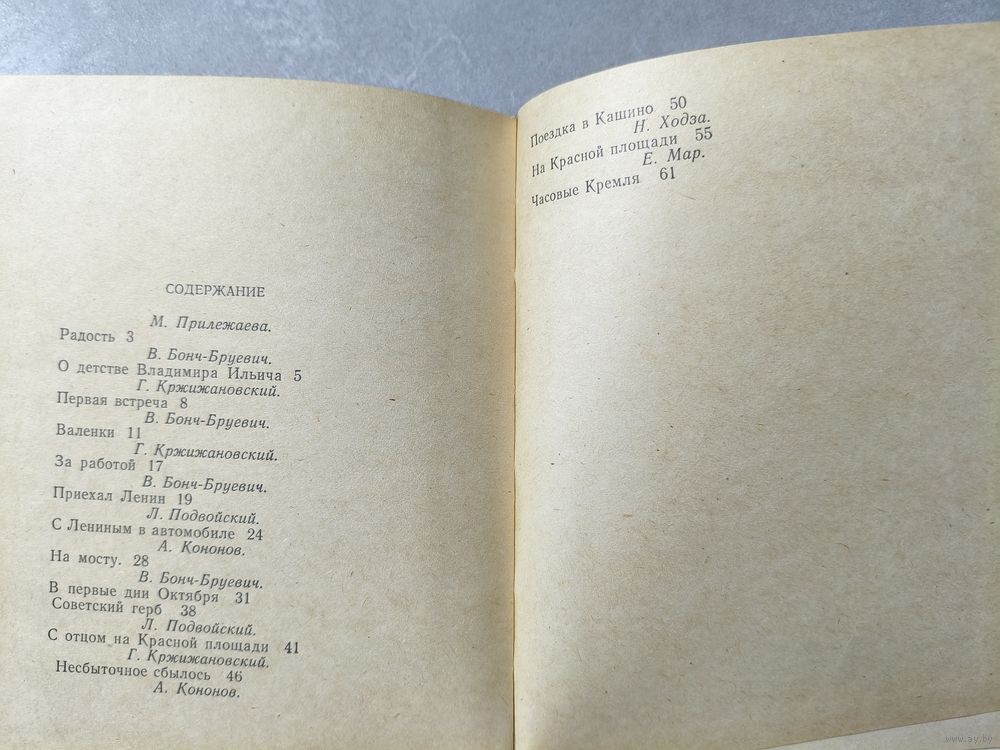 СОДЕРЖАНИЕ
М. Прилежаева.
Радость 3
В. Бонч-Бруевич.
О детстве Владимира Ильича 5
Г. Кржижановский.
Первая встреча 8
В. Бонч-Бруевич.
Валенки 11
Г. Кржижановский.
За работой 17
В. Бонч-Бруевич.
Приехал Ленин 19
Л. Подвойский.
С Лениным в автомобиле 24
А. Кононов.
На мосту. 28
В. Бонч-Бруевич.
В первые дни Октября 31
Советский герб 38
Л. Подвойский.
С отцом на Красной площади 41
Г. Кржижановский.
Несбыточное сбылось 46
А. Кононов.
Поездка в Кашино 50
Н. Ходза.
На Красной площади 55
Е. Мар.
Часовые Кремля 61
www.ay.by